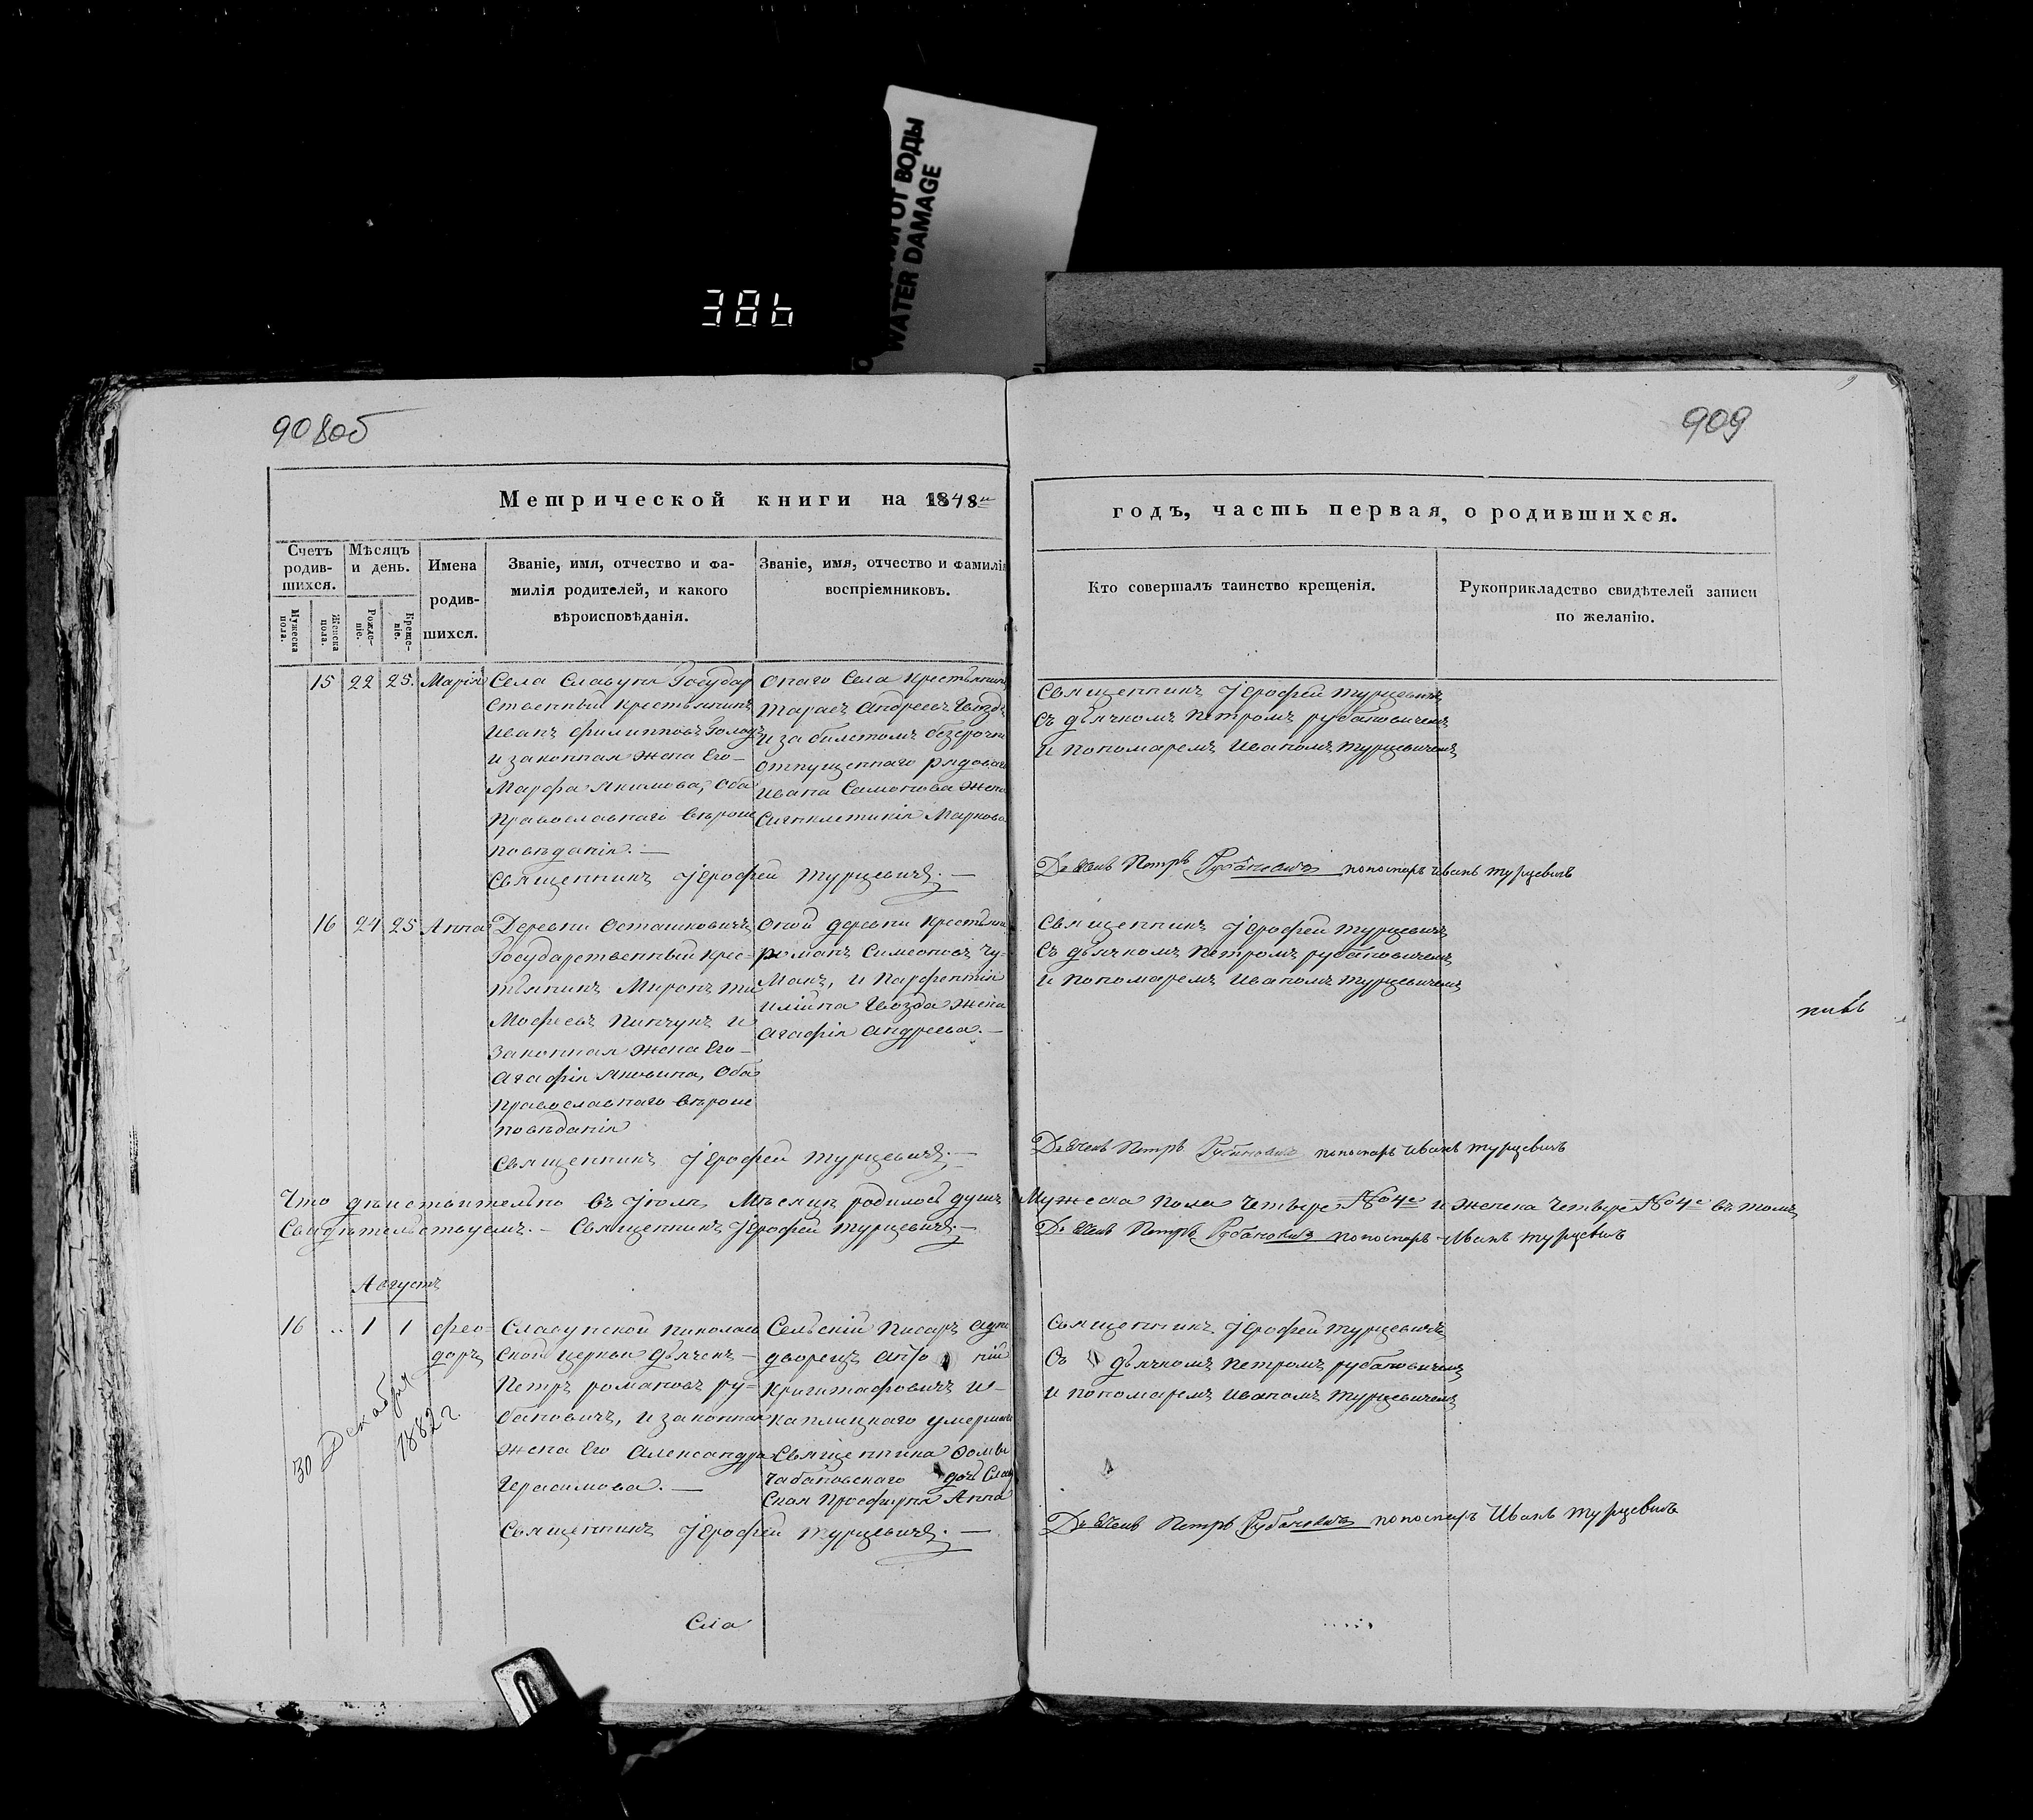 ОТ ВОДЫ
WATER DAMAGE
386
908об
909
Метрической книги на 1848й
годъ, часть первая, о родившихся.
Счетъ родив-шихся.
Мужеска пола.
Женска пола.
Мѣсяцъ и день.
Рожде-ніе.
Креще-ніе.
Имена родив-шихся.
Званіе, имя, отчество и фа-
милія родителей, и какого
вѣроисповѣданія.
Званіе, имя, отчество и фамилія
воспріемниковъ.
Кто совершалъ таинство крещенія.
Рукоприкладство свидѣтелей записи
по желанію.
15 22 25. Марія
Села Славуня Государ
ственный крестьянинъ
Иванъ Филипповъ
и законная жена Его
Марфа Якимова, оба
православнаго вѣроис
повѣданія.—
Онаго Села крестьянинъ
Тарасъ Андреевъ Гвоздь
и за билетомъ безсрочно
отпущеннаго рядоваго
Ивана Самонова жена
Сигклитикія Маркова
Священникъ Іерофей Турцевичъ
Съ дьячкомъ Петромъ Рубановичемъ
и пономаремъ Иваномъ Турцевичемъ
Священникъ Іерофей Турцевичъ.—
Дьячекъ Петръ Рубановичъ пономарь Иванъ Турцевичъ
16 24 25 Анна
Деревни Осташковичъ
Государственный крес=
тьянинъ Миронъ Ти
мофеевъ Пинчукъ и
Законная жена Его
Агафія Яковлева, Оба
Православнаго вѣроис
повѣданія
Оной деревни Крестьянинъ
Романъ Симеоновъ Чу-
макъ, и Парфентія
Илійна Гвозда жена
Агафія Андреева.—
Священникъ Іерофей Турцевичъ
Съ дьячкомъ Петромъ Рубановичемъ
и пономаремъ Иваномъ Турцевичемъ
Священникъ Іерофей Турцевичъ.—
Дьячекъ Петръ Рубановичъ пономарь Иванъ Турцевичъ
Что дѣйствительно въ Іюлѣ Мѣсяцѣ родилось душъ Мужеска пола Четыре №4е и женска Четыре №4е въ томъ
Свидѣтельствуемъ.— Священникъ Іерофей Турцевичъ.— Дьячекъ Петръ Рубановичъ пономарь Иванъ Турцевичъ
Августъ
16 .. 1 1 Фео-
доръ
30 Декабря
1882 г.
Славунской Николаев
ской церкви дьячекъ—
Петръ Романовъ Ру=
бановичъ, и законная
жена Его Александра
Герасимова.—
Сельскій Писарь одно
дворецъ Анто ній
Криштафовичъ и—
Каплицкаго умершаго
Священника Фомы
Чабановскаго дочь
Анна
Священникъ Іерофей Турцевичъ
Съ дьячкомъ Петромъ Рубановичемъ
и пономаремъ Иваномъ Турцевичемъ
Священникъ Іерофей Турцевичъ.—
Дьячекъ Петръ Рубановичъ пономарь Иванъ Турцевичъ
Сла